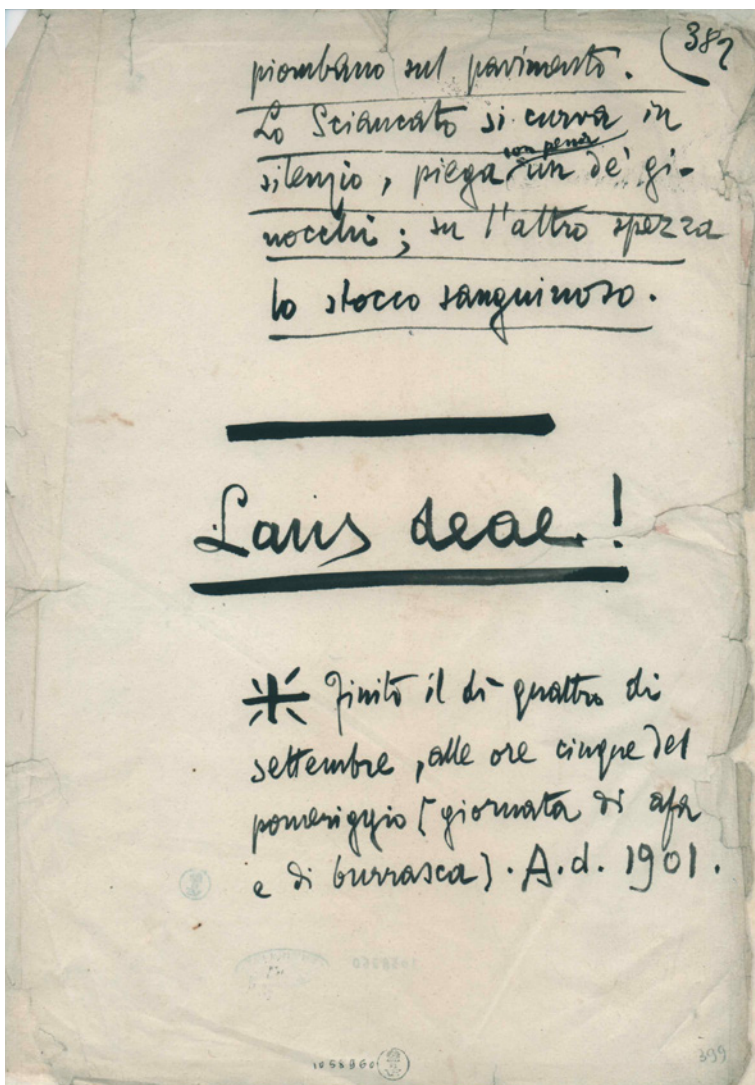 382
piombano sul pavimento.
Lo Sciancato si curva in
con pena
silenzio, piega un de' gi-
nocchi; su l'altro spezza
lo stocco sanguinoso.
Laus deae!
Finito il dì quattro di
settembre, alle ore cinque del
pomeriggio (giornata di afa
e di burrasca). A.d. 1901.
1058960
1058960
399